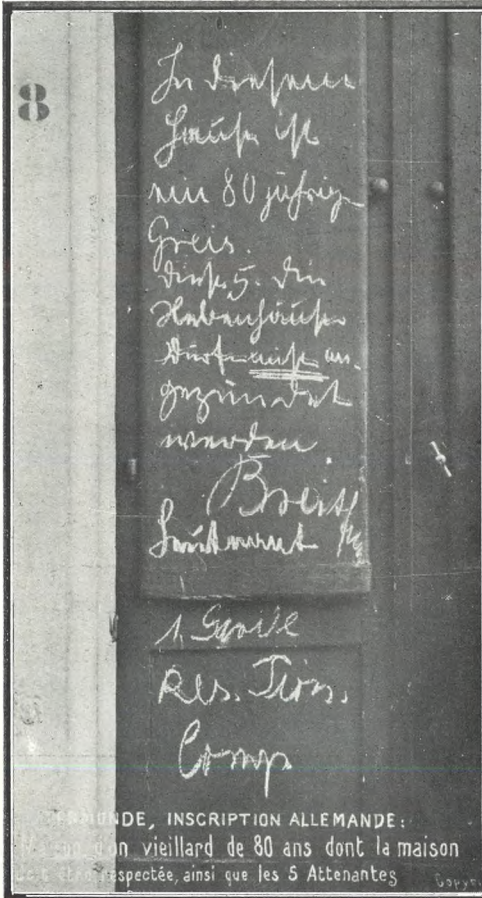 8
In diesem
Hause ist
ein 80 jährig
Greis.
diese 5. die
Nebenhäuser
dürfe nicht an-
gezündet
werden
Leutnant
1. Garde
Res. Pion.
Comp
MONDE, INSCRIPTION ALLEMANDE:
d'un vieillard de 80 ans dont la maison
être respectée, ainsi que les 5 Attenantes